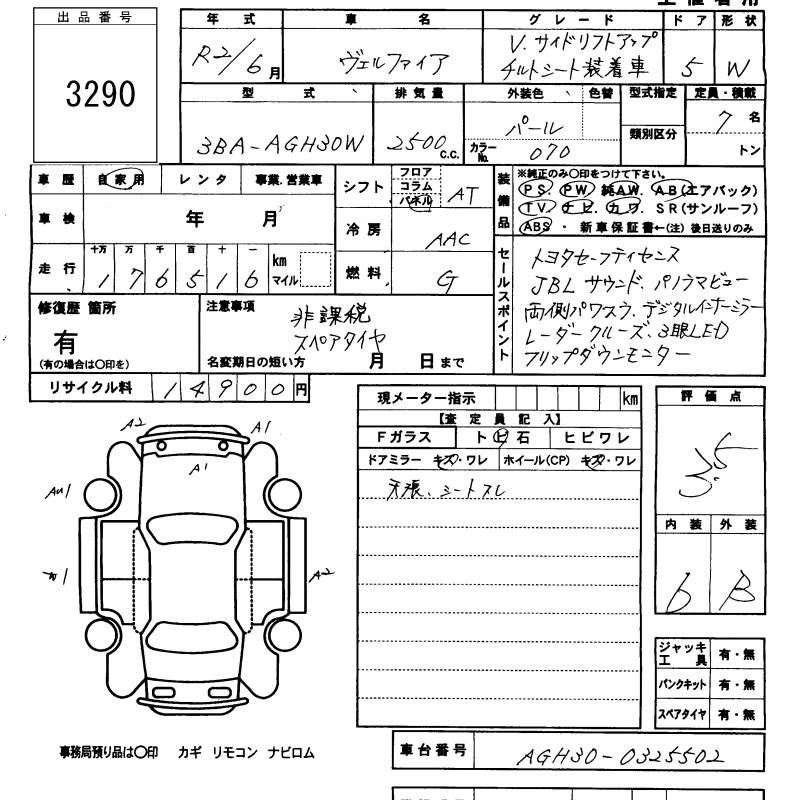 出品番号
3290
年式 車名 グレード ドア 形状
R2/6月 ヴェルファイア V.サイドリフトアップ 5 W
チルトシート装着車
型式 排気量 外装色 色替 型式指定 定員・積載
3BA-AGH30W 2500 c.c. パール 類別区分 7名
カラーNo. 070 トン
車歴 自家用 レンタ 事業.営業車
車検 年 月
走行 十万 万 千 百 十 一
176516 km マイル
シフト フロア コラム パネル AT
冷房 AAC
燃料 G
装備品 ※純正のみ○印をつけて下さい。
PS PW 純AW. AB(エアバック)
TV. ナビ. カワ. SR(サンルーフ)
ABS ・ 新車保証書←(注) 後日送りのみ
セールスポイント
トヨタセーフティセンス
JBLサウンド、パノラマビュー
両側パワスラ、デジタルインナーミラー
レーダークルーズ、3眼LED
フリップダウンモニター
修復歴 箇所
有
(有の場合は○印を)
注意事項
非課税
スペアタイヤ
名変期日の短い方 月 日まで
リサイクル料 14900円
現メーター指示 km
【査定員記入】
Fガラス ト ビ 石 ヒビワレ
ドアミラー キズ・ワレ ホイール(CP) キズ・ワレ
天張、シートスレ
評価点
3.5
内装 外装
6 B
A2 A1
A1
A2
ジャッキ工具 有・無
パンクキット 有・無
スペアタイヤ 有・無
事務局預り品は○印 カギ リモコン ナビロム
車台番号 AGH30-0325502